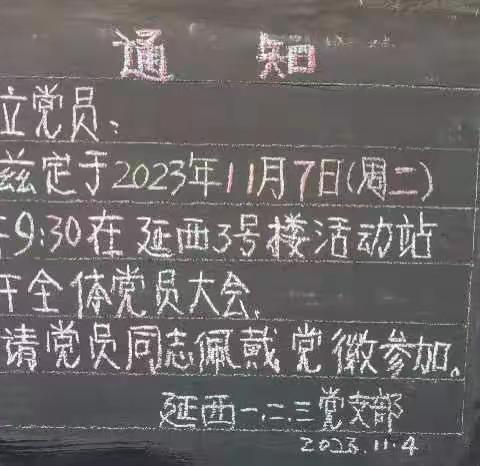 通知
立党员：
兹定于2023年11月7日(周二)
9:30在延西3号楼活动站
开全体党员大会.
请党员同志佩戴党徽参加。
延西一.二.三党支部
2023.11.4